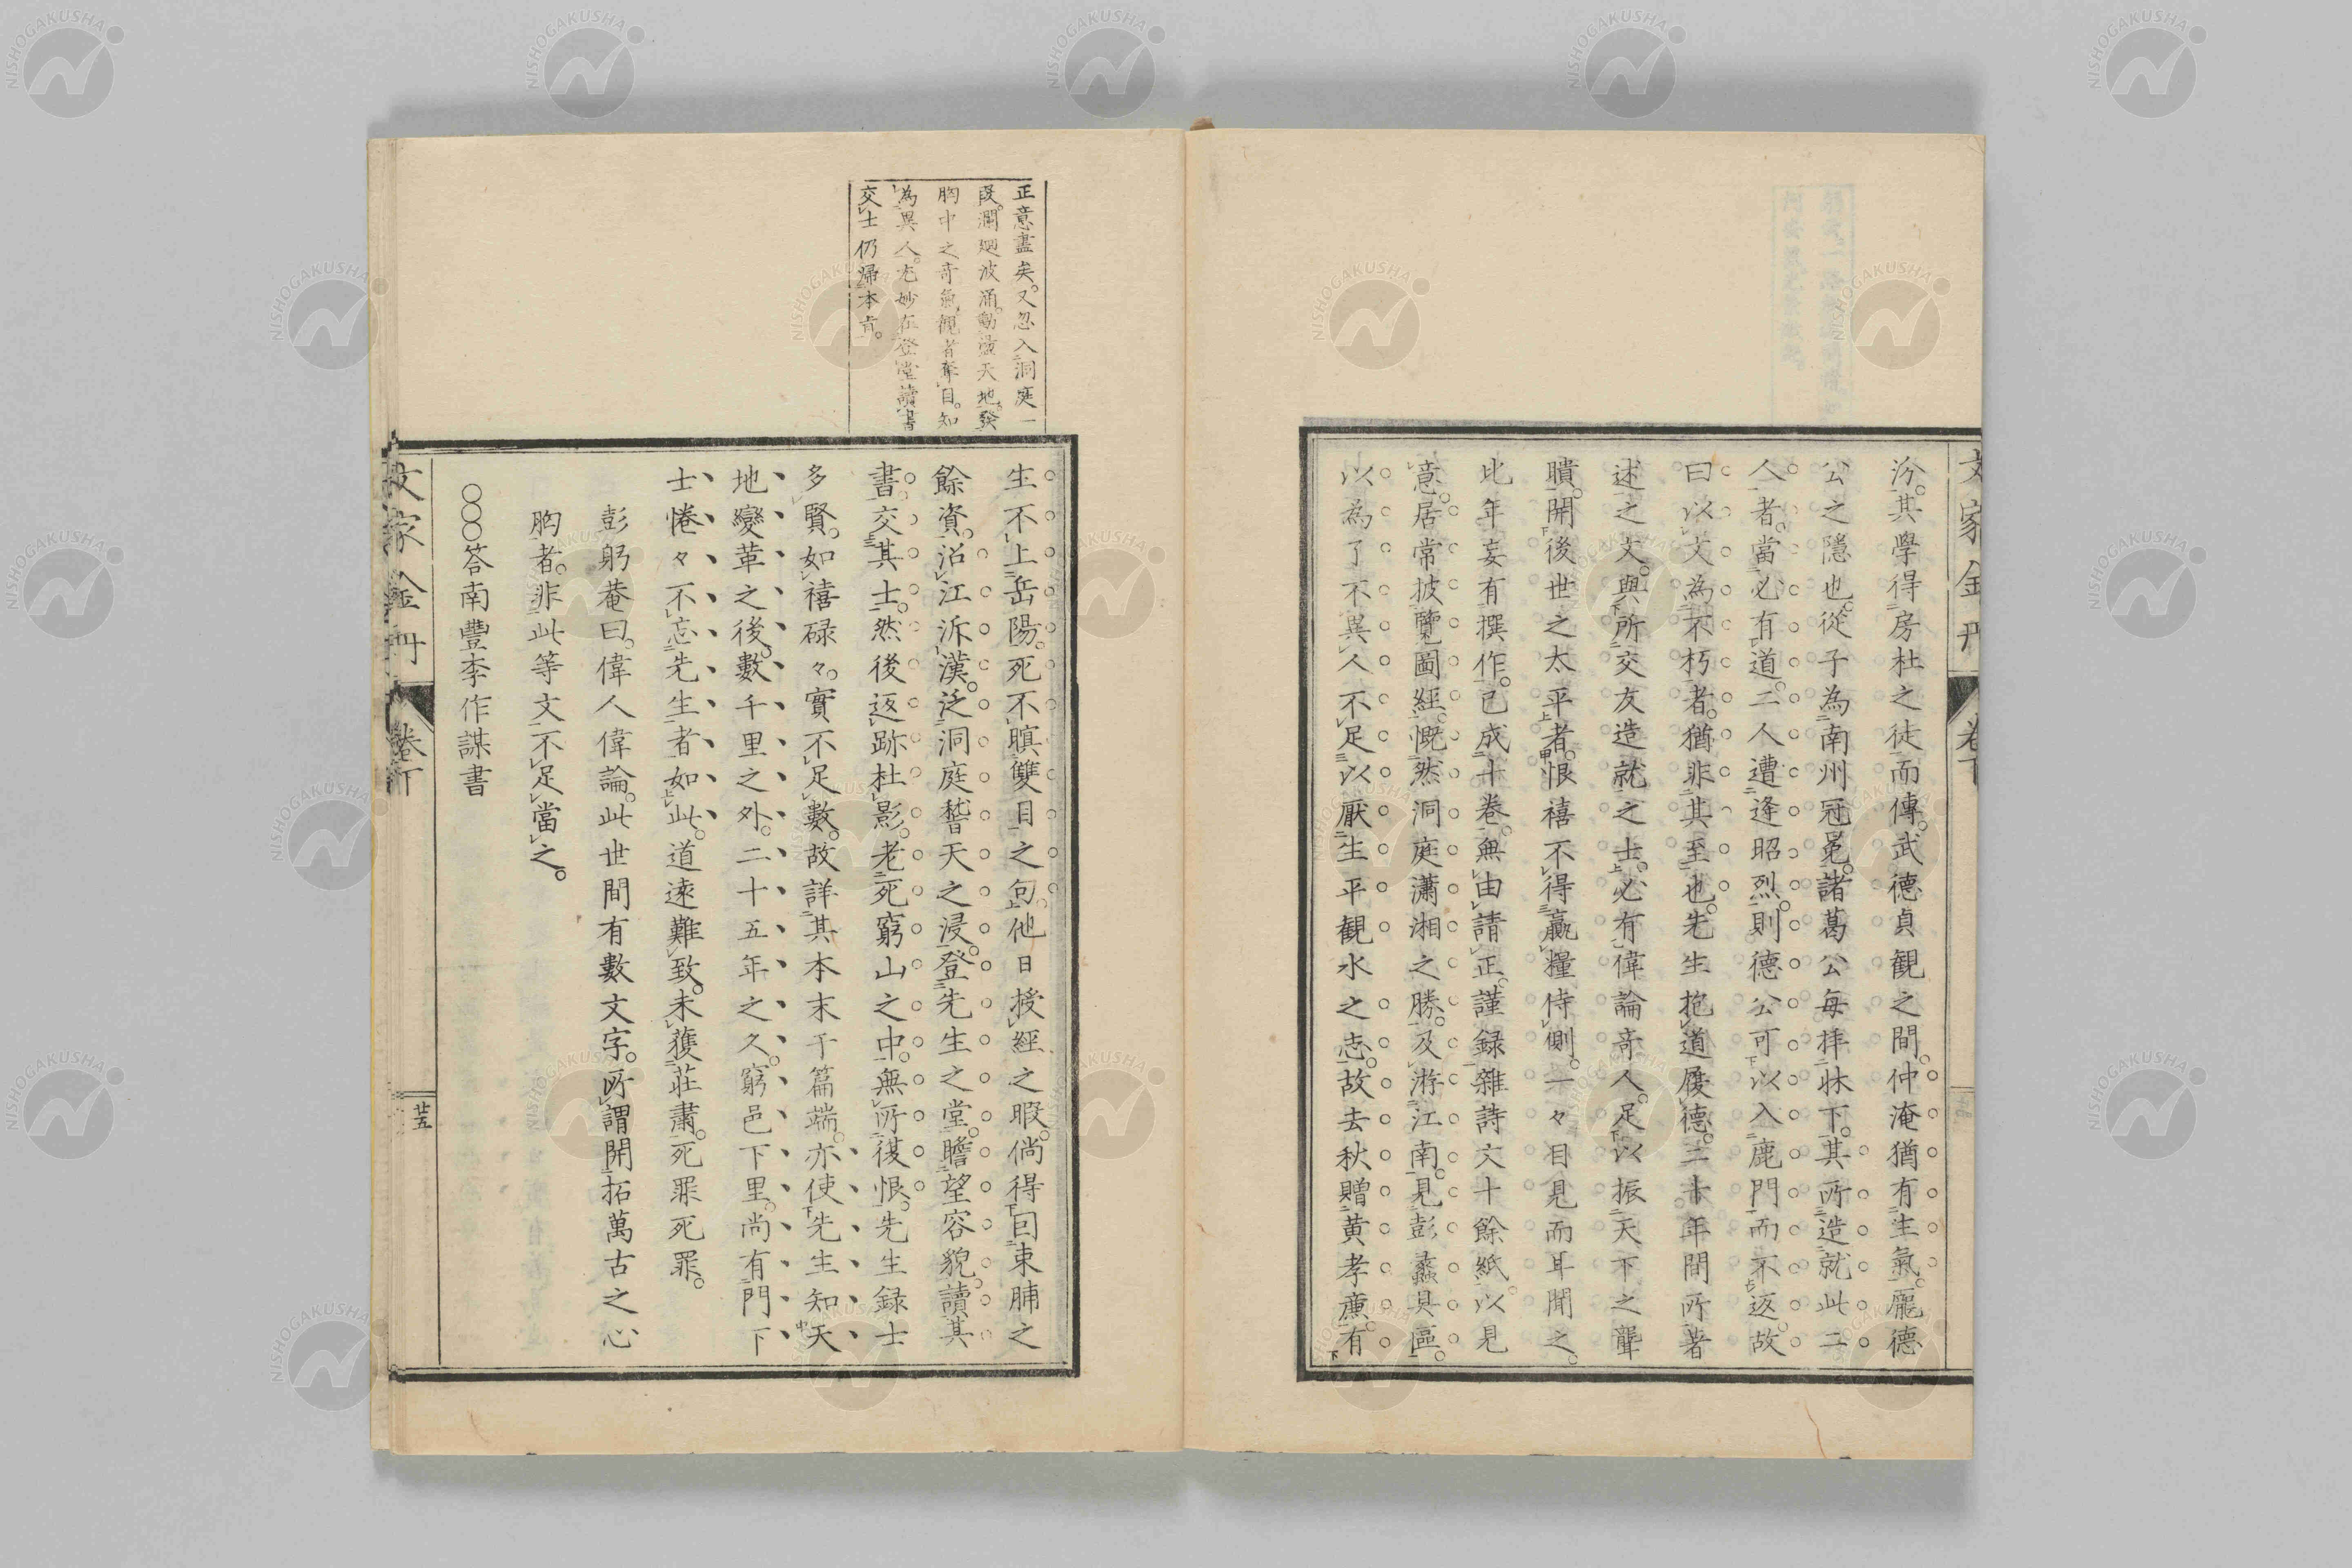 汾其學得房杜之徒而傳武德貞觀之間。仲淹猶有生氣。龐德
公之隱也。從子為南州冠冕。諸葛公每拝牀下。其所造就此二
人者。當必有道。二人遭逢昭烈。則德公可以入鹿門而不返。故
曰以文為不朽者。猶非其至也。先生抱道履德。三十年間所著
述之文。與所交友造就之士。必有偉論奇人。足以振天下之聾
聵。開後世之太平者。恨禧不得贏糧侍側。一々目見而耳聞之。
比年妄有撰作。已成十卷。無由請正。謹録雜詩文十餘紙。以見
意。居常披覽圖經。慨然洞庭瀟湘之勝。及游江南。見彭蠡具區。
以為了不異人。不足以厭生平觀水之志。故去秋贈黃孝廉有
文家金丹
卷下
正意盡矣。又忽入洞庭一
段。瀾廻波涌。動盪天地。發
胸中之奇氣。觀者奪目。知
為異人。尤妙在登堂讀書
交士仍歸本肯。
生不上岳陽。死不瞑雙目之句。他日授經之暇。倘得囙束脯之
餘資。沿江泝漢。泛洞庭嵆天之浸。登先生之堂。瞻望容貌。讀其
書。交其士。然後返跡杜影。老死窮山之中。無所復恨。先生録士
多賢。如禧碌々。實不足數。故詳其本末于篇端。亦使先生知天
地變革之後。數千里之外。二十五年之久。窮邑下里。尚有門下
士惓々不忘先生者如此。道遠難致。未獲莊肅。死罪死罪。
彭躬菴曰。偉人偉論。此世間有數文字。所謂開拓萬古之心
胸者。非此等文。不足當之。
○○○答南豐李作謀書
文家金丹
卷下
廿五
NISHOGAKUSHA